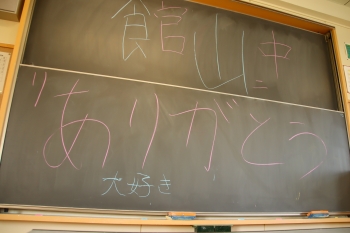 館山二中
"ありがとう
大好き